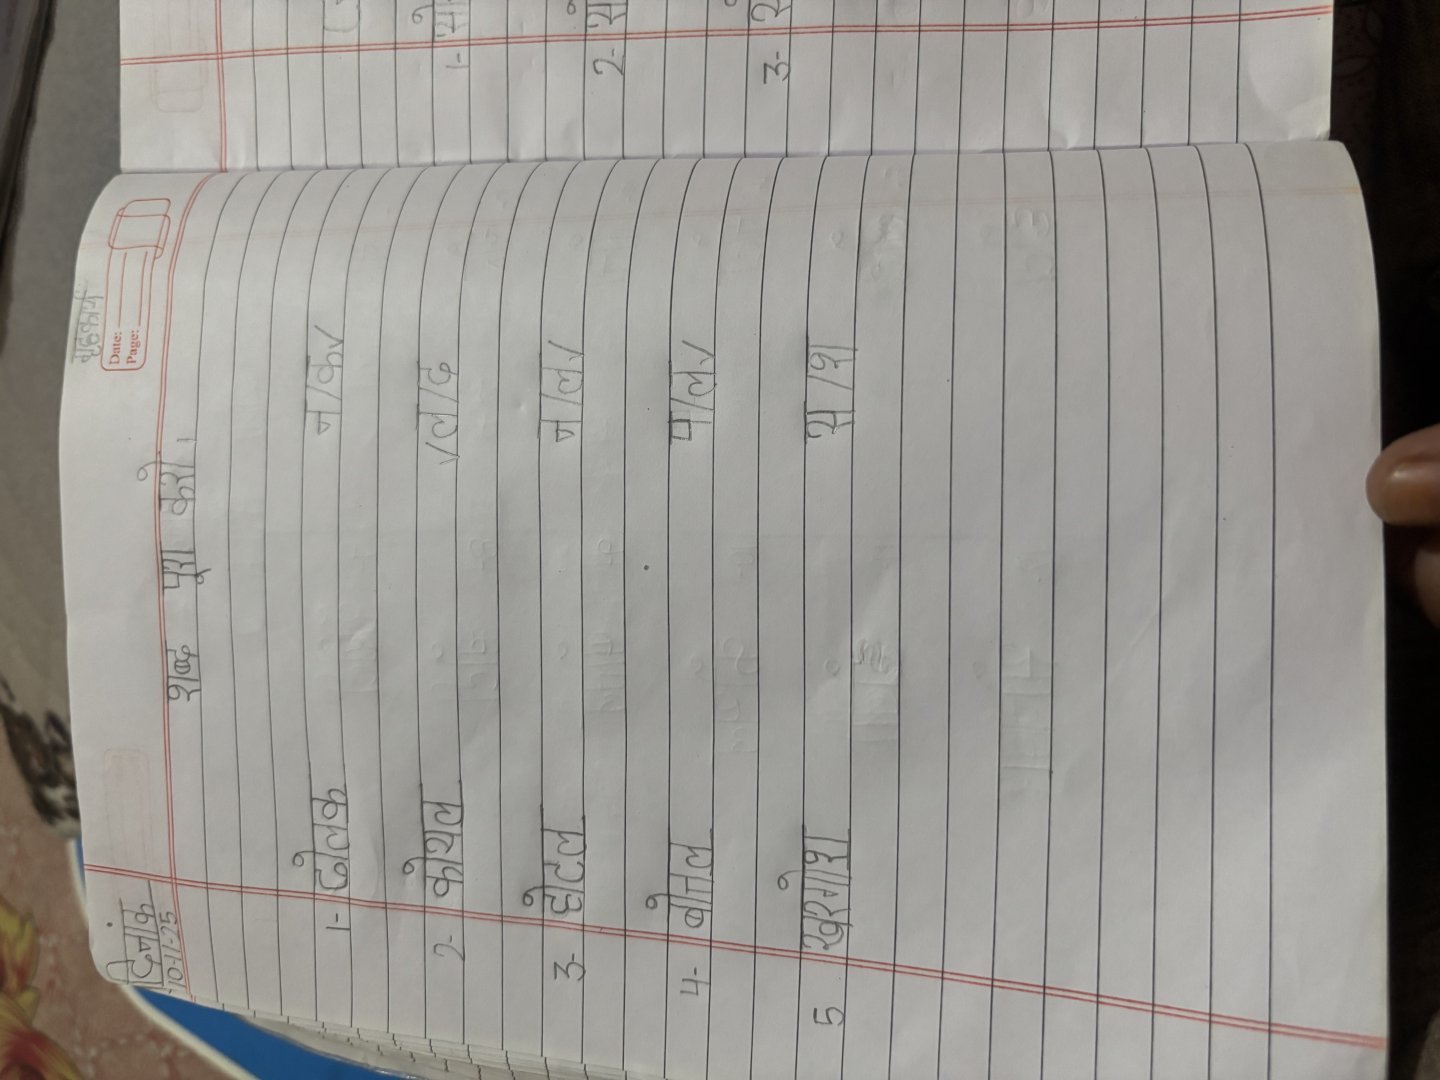 गृहकार्य
Date:
Page:
दिनांक
10-11-25
शब्द पूरा करो।
1- ढोलक न/क✓
2- कोयल ✓ल/द
3- होटल न/ल✓
4- बोतल प/ल✓
5 खरगोश स/श
1-
2-
3-